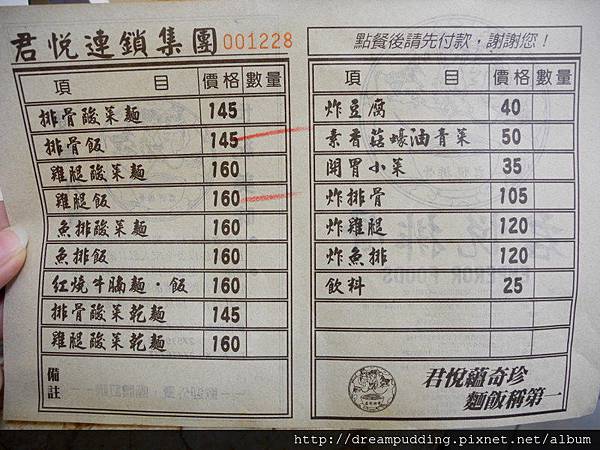 君悅連鎖集團 001228
項目 價格 數量
排骨酸菜麵 145
排骨飯 145
雞腿酸菜麵 160
雞腿飯 160
魚排酸菜麵 160
魚排飯 160
紅燒牛腩麵・飯 160
排骨酸菜乾麵 145
雞腿酸菜乾麵 160
備註
點餐後請先付款，謝謝您！
項目 價格 數量
炸豆腐 40
素香菇蠔油青菜 50
開胃小菜 35
炸排骨 105
炸雞腿 120
炸魚排 120
飲料 25
君悅蘊奇珍
麵飯稱第一
http://dreampudding.pixnet.net/album